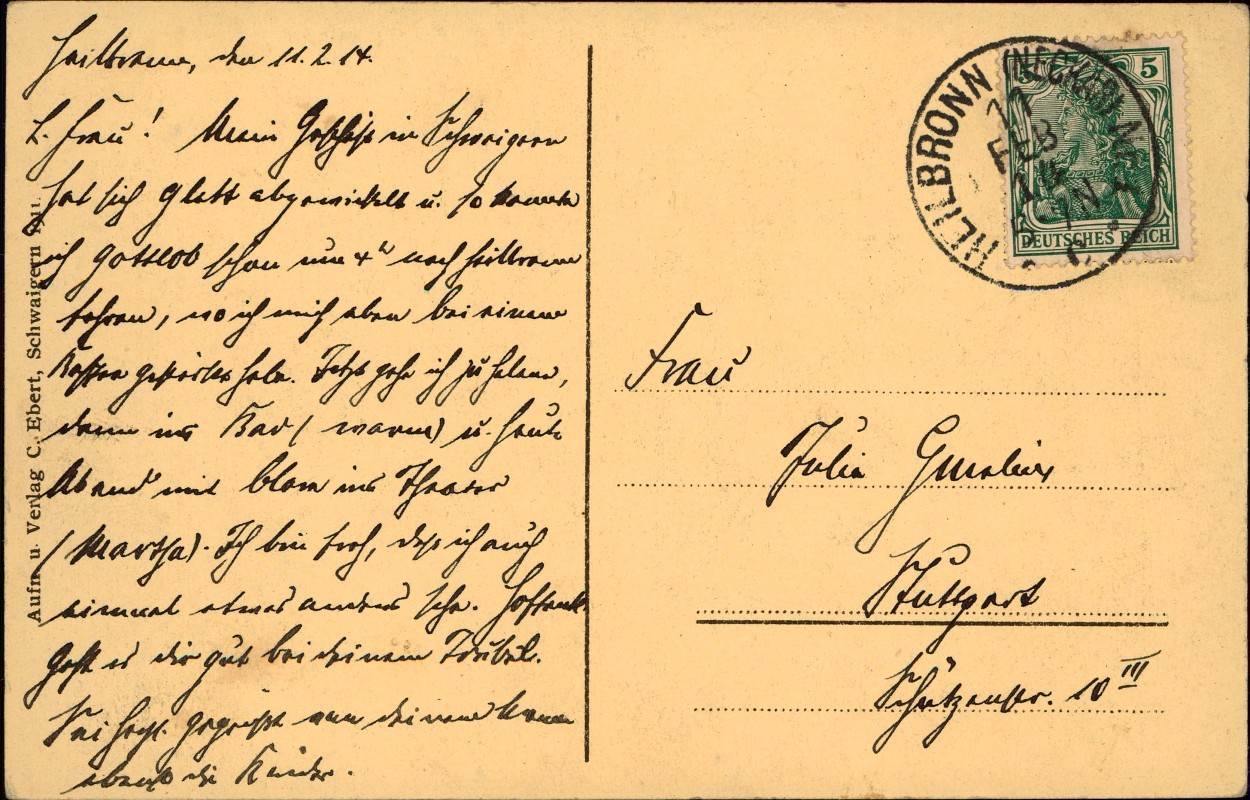 Heilbronn, den 11.2.14.
L. Frau! Mein Geschäft in Schwaigern
hat sich glatt abgewickelt u. so konnte
ich gottlob schon um 4 h nach Heilbronn
fahren, wo ich mich eben bei einem
Kaffee gestärkt habe. Jetzt gehe ich zu Helene,
dann ins Bad (warm) u. heute
Abend mit ins Theater
(Martha). Ich bin froh, daß ich auch
einmal etwas anderes sehe. Hoffentl.
geht es dir gut bei deinem Trubel.
Sei herzl. gegrüßt von deinem
ebenso die Kinder.
Aufn. u. Verlag C. Ebert, Schwaigern 1911.
HEILBRONN (NECKAR) No. 1
11
FEB
14
N
5
DEUTSCHES REICH
Frau
Julie Gmelin
Stuttgart
Schützenstr. 10 III